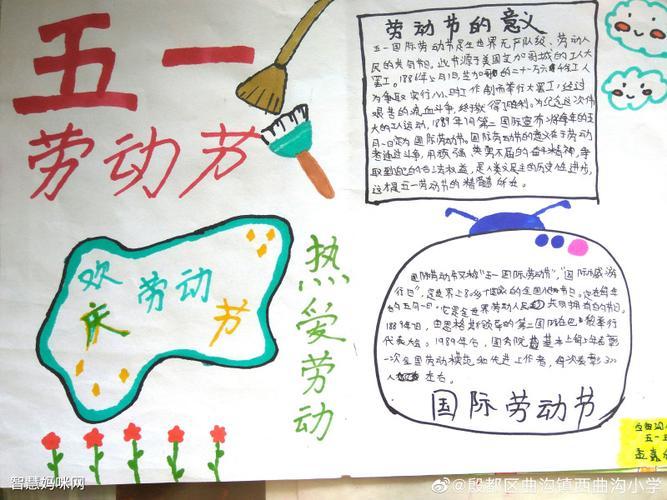 五一
劳动节
欢庆劳动节
热爱劳动
劳动节的意义
五一国际劳动节是全世界无产阶级、劳动人
民的共同节日。此节源于美国芝加哥城的工人大
罢工。1886年5月1日,芝加哥的二十一万六千余工人
为争取实行八小时工作制而举行大罢工,经过
艰苦的流血斗争,终于获得了胜利。为纪念这次伟
大的工人运动,1889年7月第二国际宣布将每年的五
月一日定为国际劳动节。国际劳动节的意义在于劳动
者通过斗争,用顽强、英勇不屈的奋斗精神,争
取到了自己的合法权益,是人类文明民主的历史性进步,
这才是五一劳动节的精髓所在。
国际劳动节又称"五一国际劳动节","国际示威游
行日",是世界上80多个国家的全国性节日。定在每年
的五月一日。它是全世界劳动人民共同拥有的节日。
1889年7月,由恩格斯领导的第二国际在巴黎举行
代表大会。1989年后,国务院基本上每5年表彰
一次全国劳动模范和先进工作者,每次表彰3000
人左右。
国际劳动节
智慧妈咪网
@殷都区曲沟镇西曲沟小学